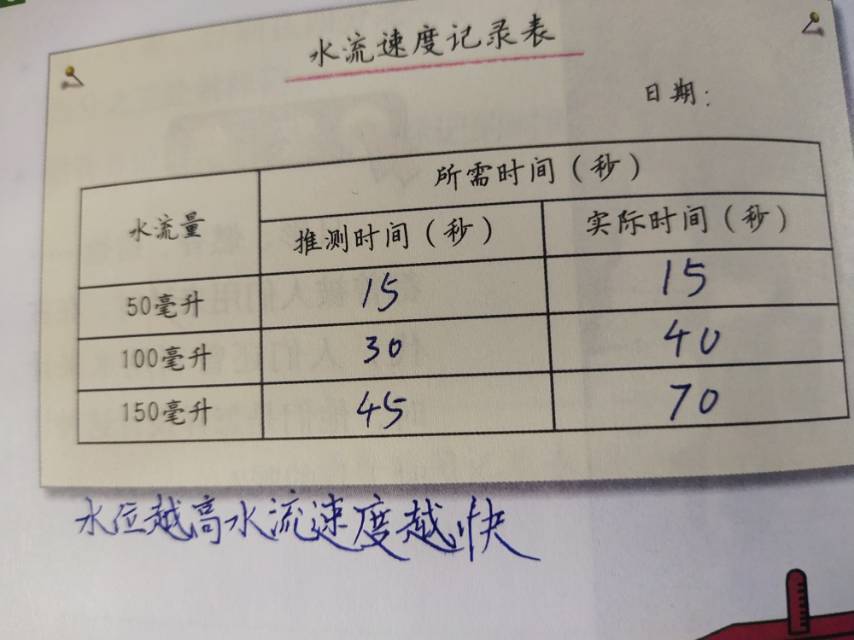 水流速度记录表
日期：
水流量 所需时间（秒）
推测时间（秒） 实际时间（秒）
50毫升 15 15
100毫升 30 40
150毫升 45 70
水位越高水流速度越快